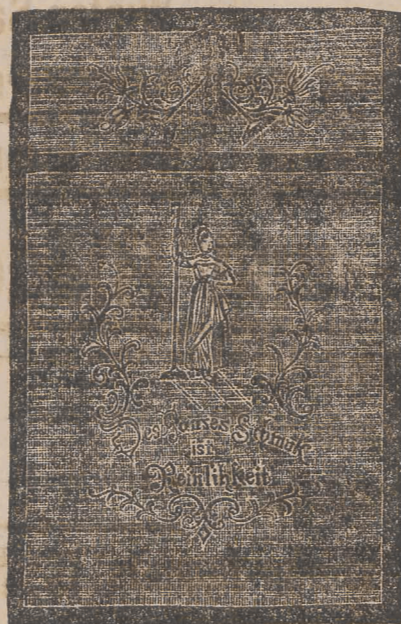 Des Hauses Schmuk
ist
Reinlihkeit